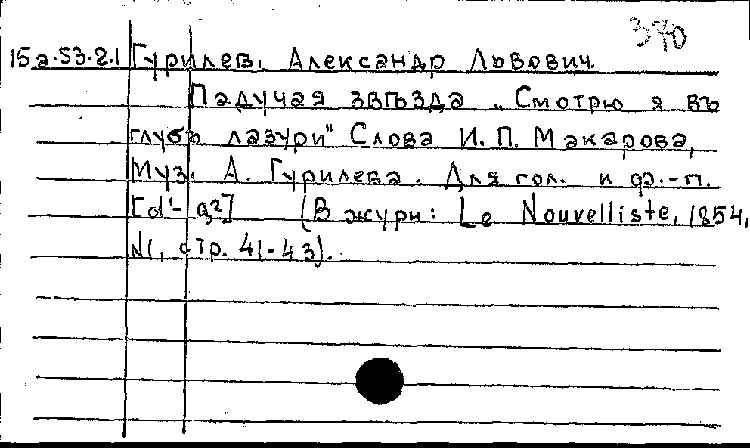 370
15а.53.2.1 Гурилев, Александр Львович
Падучая звѣзда „Смотрю я въ
глубь лазури" Слова И. П. Макарова,
Муз. А. Гурилева. Для гол. и ф.-п.
[d¹- g²] (В журн: Le Nouvelliste, 1854,
N1, стр. 41-43).